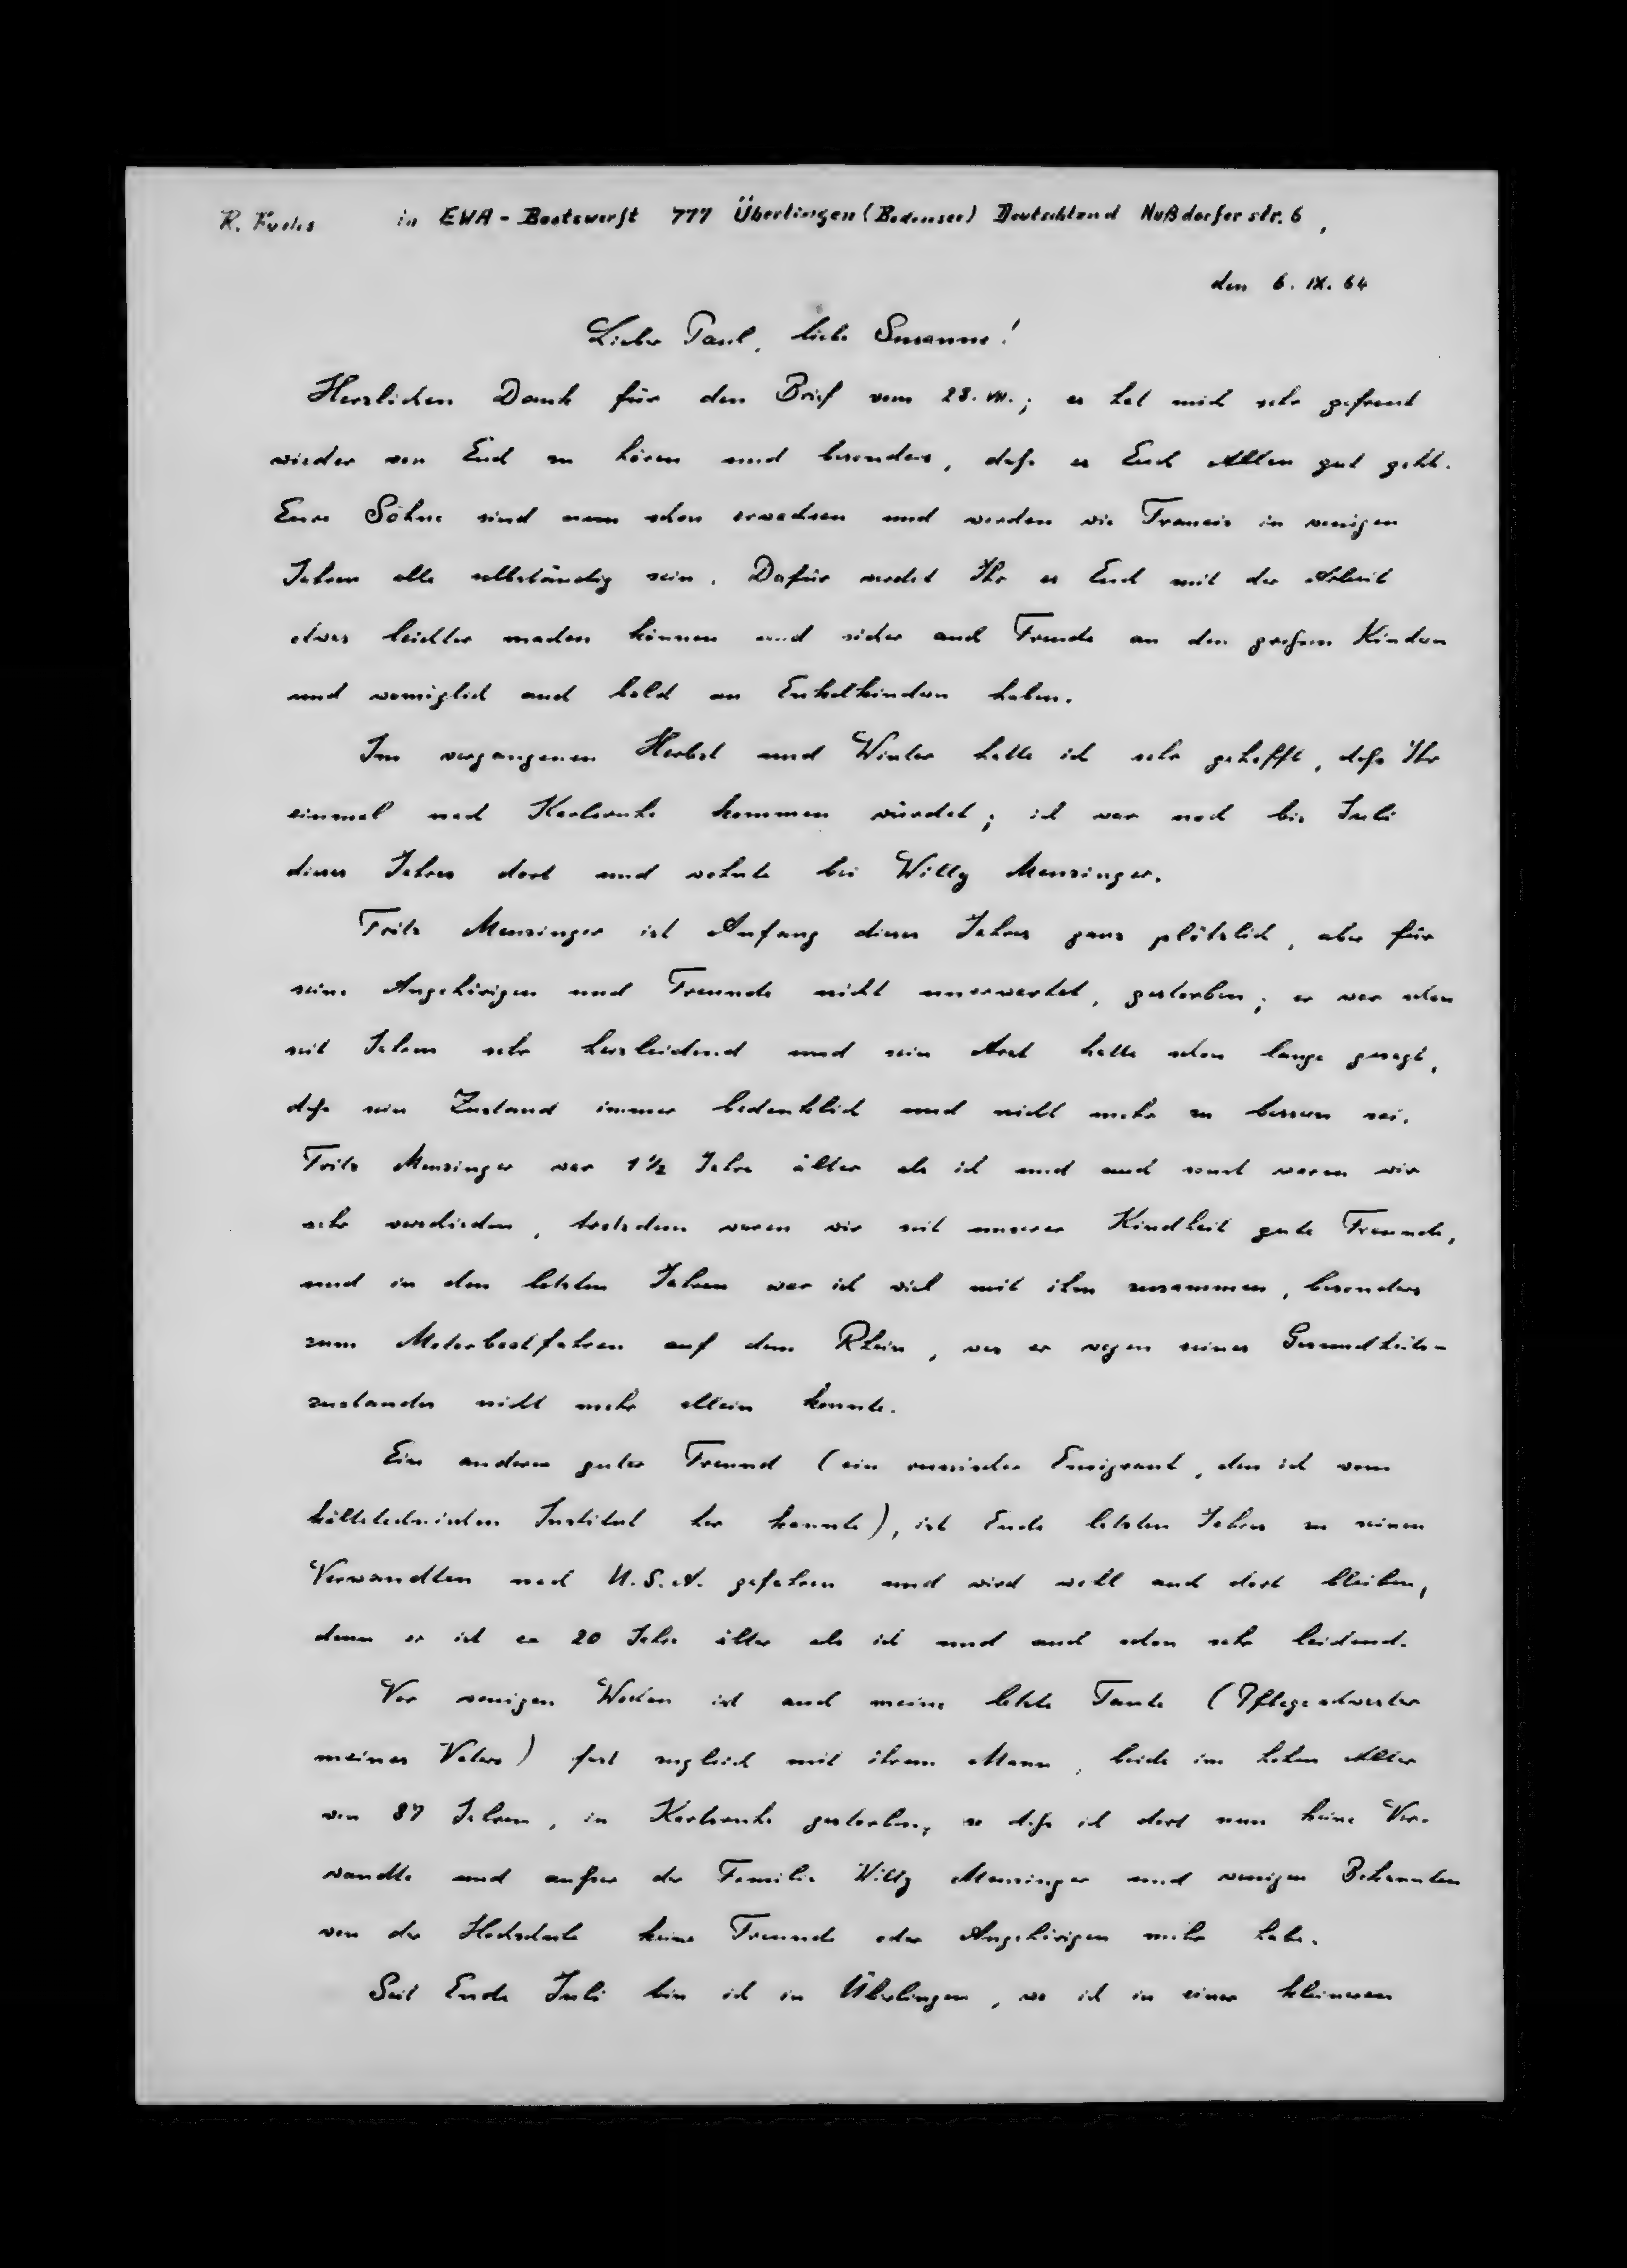 R. Fuchs in EWA - Bootswerft 777 Überlingen (Bodensee) Deutschland Nußdorfer str. 6,
den 6. IX. 64
Lieber Paul, liebe Susanne!
Herzlichen Dank für den Brief vom 28. VII.; es hat mich sehr gefreut
wieder von Euch zu hören und besonders, dass es Euch Allen gut geht.
Eure Söhne sind nun schon erwachsen und werden wie Francis in wenigen
Jahren alle selbständig sein. Dafür werdet Ihr es Euch mit der Arbeit
etwas leichter machen können und sicher auch Freude an den grossen Kindern
und womöglich auch bald an Enkelkindern haben.
Im vergangenen Herbst und Winter hatte ich sehr gehofft, dass Ihr
einmal nach Karlsruhe kommen würdet; ich war noch bis Juli
dieses Jahres dort und wohnte bei Willy Menzinger.
Fritz Menzinger ist Anfang dieses Jahres ganz plötzlich, aber für
seine Angehörigen und Freunde nicht unerwartet, gestorben; er war schon
seit Jahren sehr herzleidend und sein Arzt hatte schon lange gesagt,
dass sein Zustand immer bedenklich und nicht mehr zu bessern sei.
Fritz Menzinger war 1 1/2 Jahre älter als ich und auch sonst waren wir
sehr verschieden, trotzdem waren wir seit unserer Kindheit gute Freunde,
und in den letzten Jahren war ich viel mit ihm zusammen, besonders
zum Motorbootfahren auf dem Rhein, was er wegen seines Gesundheits-
zustandes nicht mehr allein konnte.
Ein anderer guter Freund (ein russischer Emigrant, den ich vom
kältetechnischen Institut her kannte), ist Ende letzten Jahres zu seinen
Verwandten nach U.S.A. gefahren und wird wohl auch dort bleiben,
denn er ist ca 20 Jahre älter als ich und auch schon sehr leidend.
Vor wenigen Wochen ist auch meine letzte Tante (Pflegeschwester
meines Vaters) fast zugleich mit ihrem Mann, beide im hohen Alter
von 87 Jahren, in Karlsruhe gestorben, so dass ich dort nun keine Ver-
wandte und ausser der Familie Willy Menzinger und wenigen Bekannten
von der Hochschule keine Freunde oder Angehörigen mehr habe.
Seit Ende Juli bin ich in Überlingen, wo ich in einer kleineren